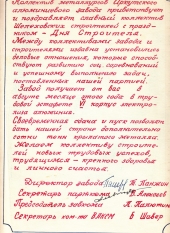 Коллектив металлургов Иркутского
алюминиевого завода приветствует
и поздравляет славный коллектив
Шелеховских строителей с празд-
ником - Днём Строителя.
Между коллективами завода и
строителями издавна установились
деловые отношения, которые способ-
ствуют развитию соц. соревнований
и успешному выполнению задач,
поставленных нашей партией.
Завод получает от вас
августе месяце этого года в тру-
довой эстафете VI корпус электро-
лиза алюминия.
Своевременная сдача и пуск позволит
дать нашей стране дополнительно
сотни тонн крылатого металла.
Желаем коллективу строите-
лей новых трудовых успехов,
трудящимся - крепкого здоровья
и личного счастья.
Директор завода П.
Секретарь парткома
Председатель завкома
Секретарь ком-та ВЛКСМ В. Шавер